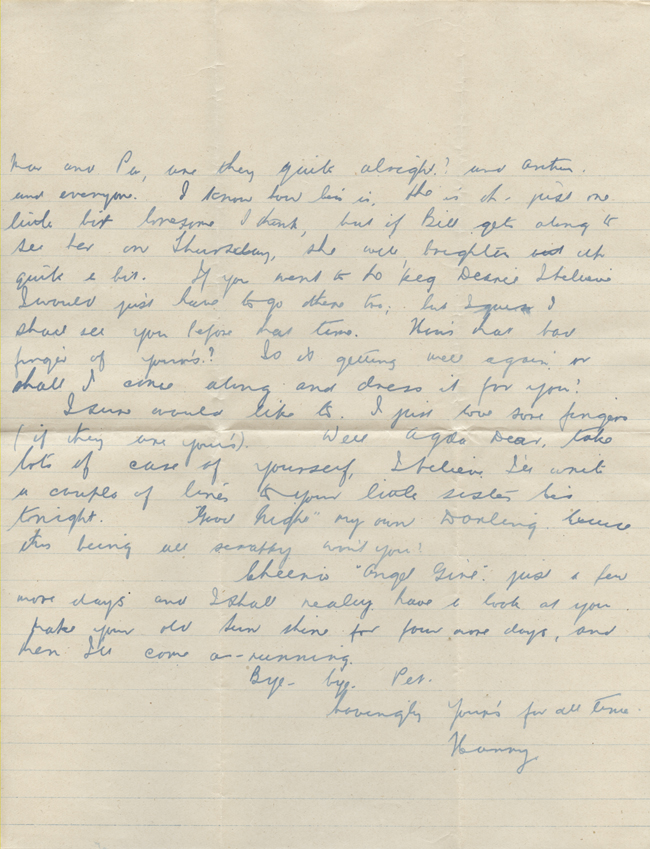 Mar and Pa, are they quite alright? and Arthur.
and everyone. I know how Lin is. She is oh- just one
little bit lonesome I think, but if Bill gets along to
see her on Thursday, she will brighten out
quite a bit. If you went to Dearie I believe
I would just have to go there too; but I guess I
shall see you before that time. How's that bad
finger of your's? Is it getting well again or
shall I come along and dress it for you?
I sure would like to. I just love sore fingers
(if they are your's). Well Dear, take
lots of care of yourself, I believe I'll write
a couple of lines to your little sister Lin
tonight. "Good Night" my own Darling.
this being all scrappy won't you?
Cheerio "Angel Girl". just a few
more days and I shall really have a look at you
make your old sun shine for four more days, and
then I'll come a--running.
Bye-bye. Pet.
Lovingly Your's for all time.